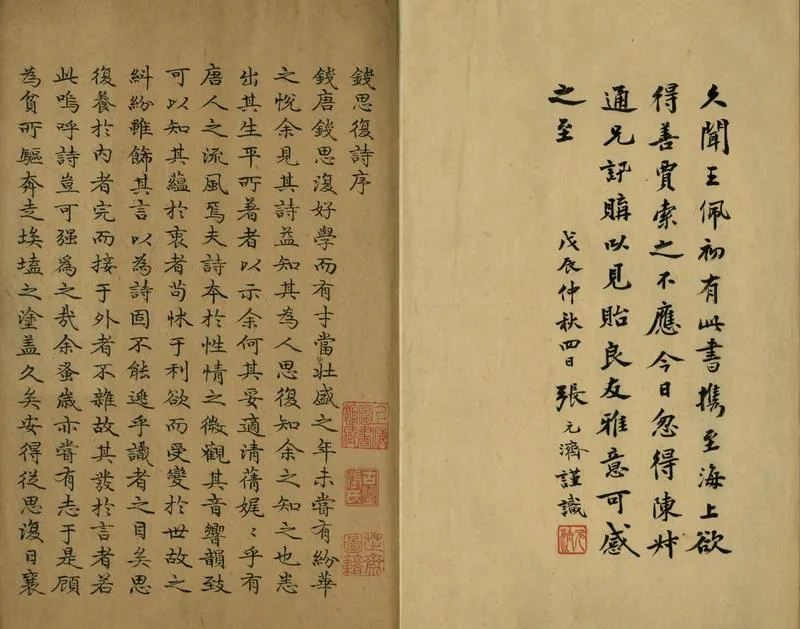 久聞王佩初有此書攜至海上欲
得善賈索之不應今日忽得陳尗
通兄訊購以見貽良友雅意可感
之至
戊辰仲秋四日張元濟謹識
元濟
錢思復詩序
錢唐錢思復好學而有才當壯盛之年未嘗有紛華
之悅余見其詩益知其為人思復知余之知之也悉
出其生平所著者以示余何其妥適清蒨娓〻乎有
唐人之流風焉夫詩本於性情之微觀其音響韻致
可以知其蘊於衷者苟怵于利欲而受變於世故之
糾紛雖飾其言以為詩固不能逃乎識者之目矣思
復養於內者完而接于外者不雜故其發於言者若
此嗚呼詩豈可强為之哉余蚤歲亦嘗有志于是顧
為貧所驅奔走埃壒之塗蓋久矣安得從思復日襄
上海
圖書
館藏
古鹽
張氏
芷齋
圖籍